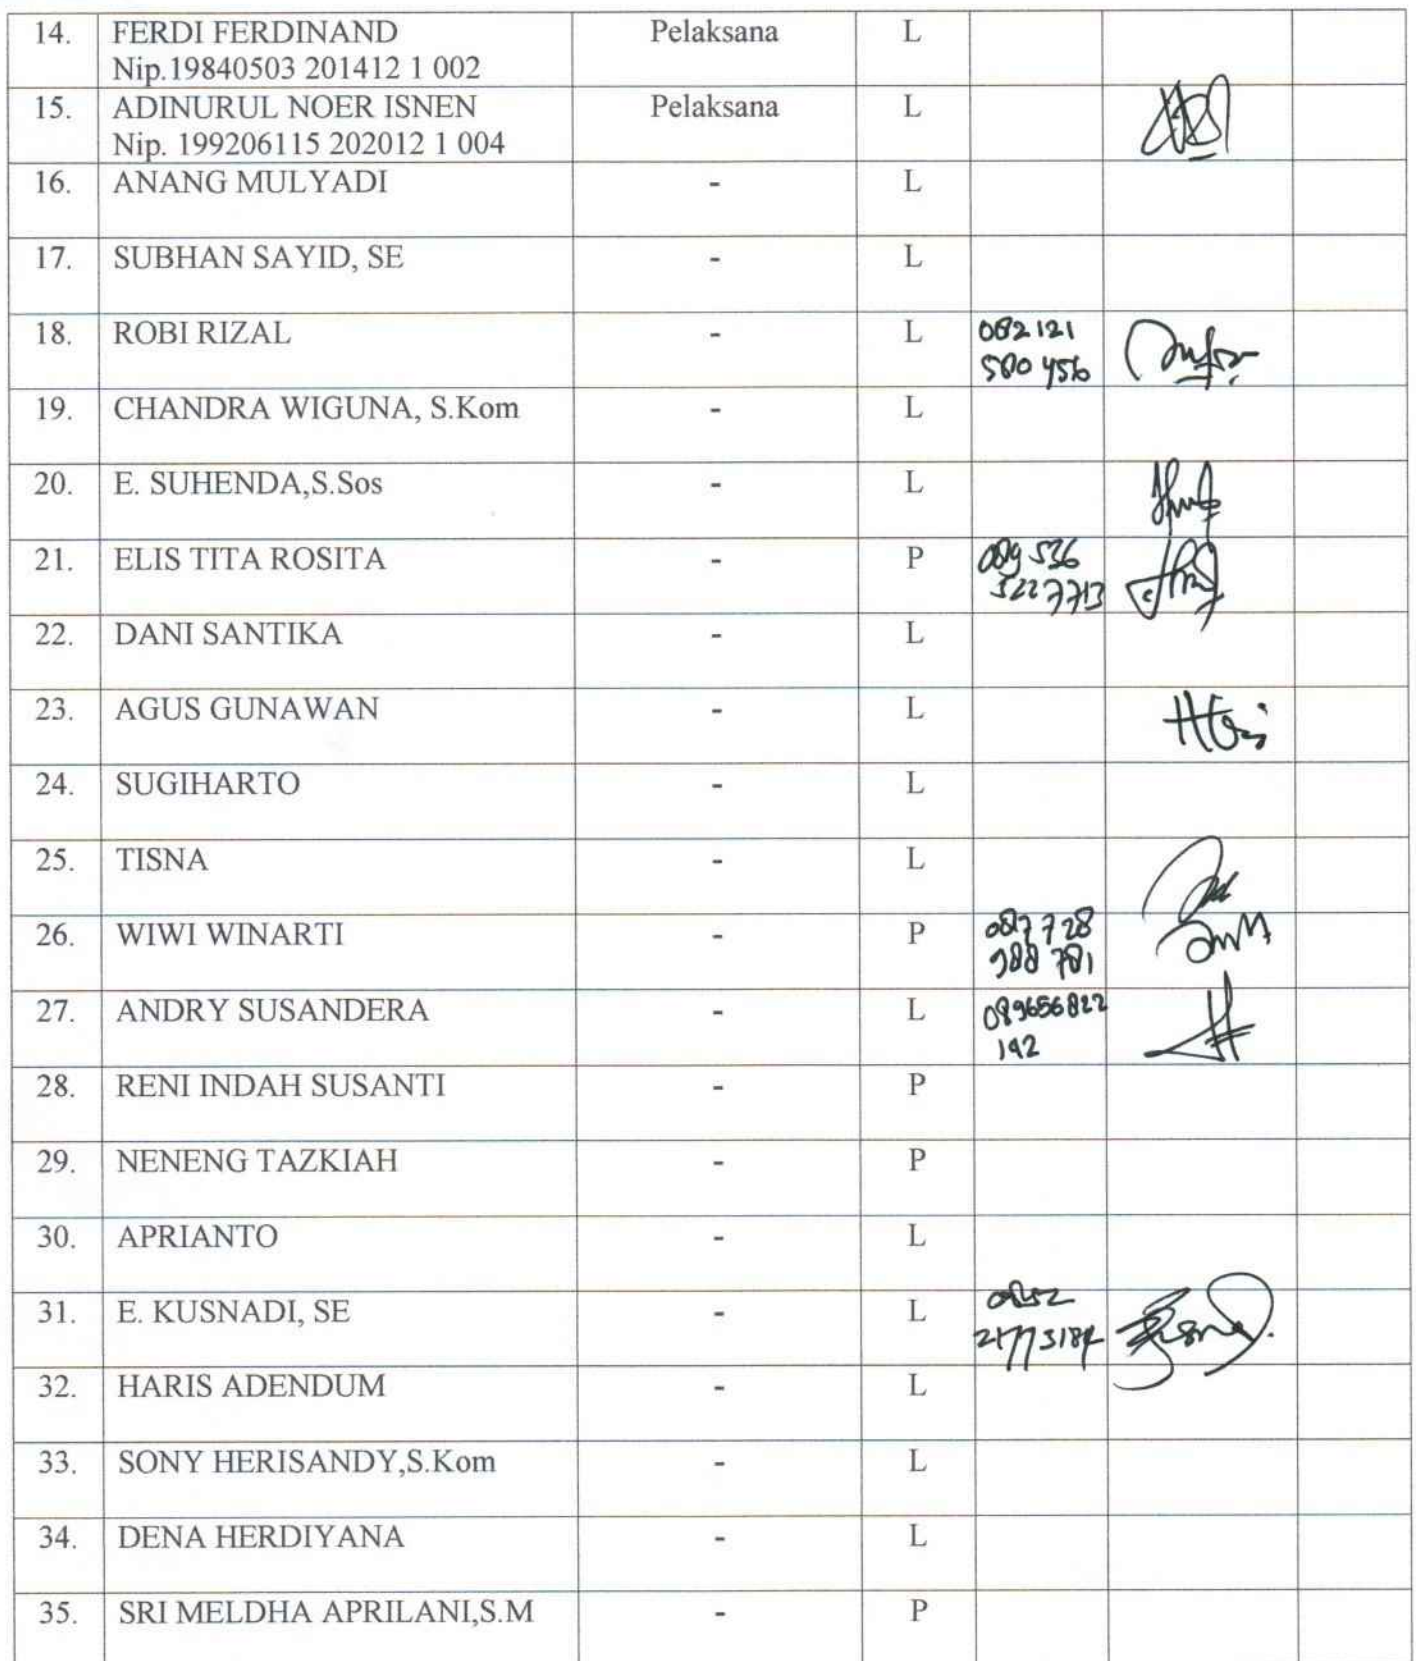 14. FERDI FERDINAND Pelaksana L
Nip.19840503 201412 1 002
15. ADINURUL NOER ISNEN Pelaksana L
Nip. 199206115 202012 1 004
16. ANANG MULYADI - L
17. SUBHAN SAYID, SE - L
18. ROBI RIZAL - L 082121
580 456
19. CHANDRA WIGUNA, S.Kom - L
20. E. SUHENDA,S.Sos - L
21. ELIS TITA ROSITA - P 089 536
3227713
22. DANI SANTIKA - L
23. AGUS GUNAWAN - L
24. SUGIHARTO - L
25. TISNA - L
26. WIWI WINARTI - P 087 728
988 781
27. ANDRY SUSANDERA - L 089656822
142
28. RENI INDAH SUSANTI - P
29. NENENG TAZKIAH - P
30. APRIANTO - L
31. E. KUSNADI, SE - L
32. HARIS ADENDUM - L
33. SONY HERISANDY,S.Kom - L
34. DENA HERDIYANA - L
35. SRI MELDHA APRILANI,S.M - P